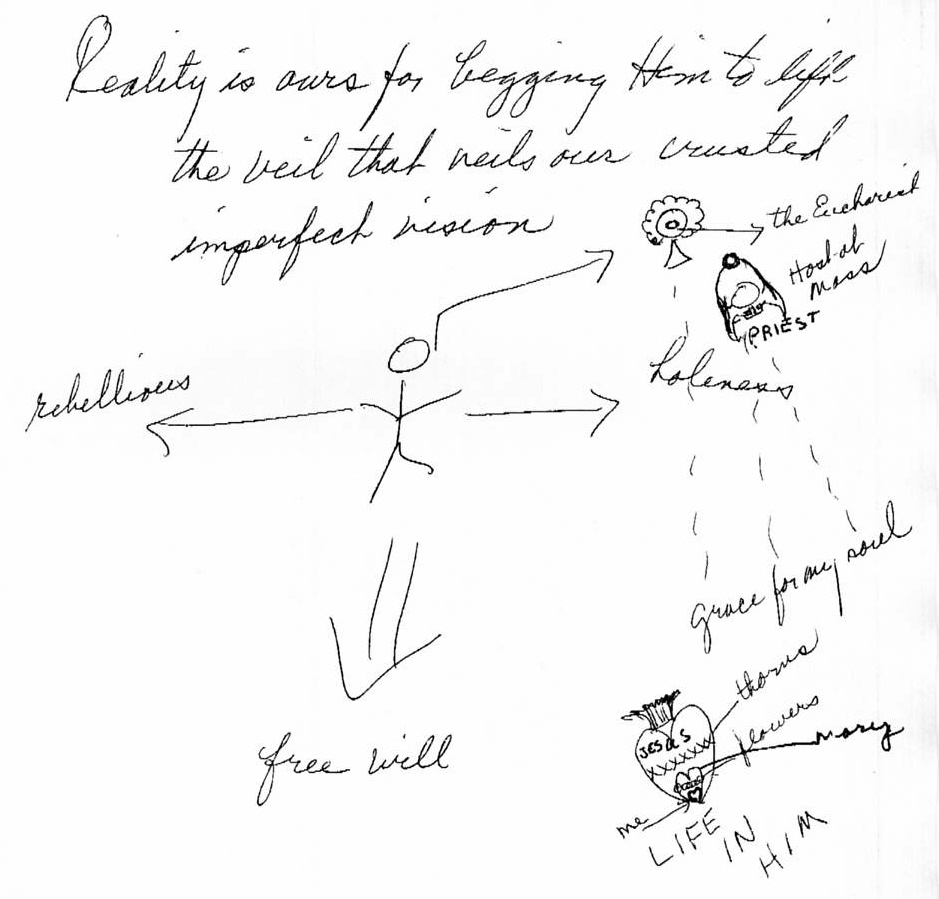 Reality is ours for begging Him to lift
the veil that veils our crusted
imperfect vision
the Eucharist
Host at
Mass
PRIEST
rebellious
holeness
grace for my soul
thorns
flowers
JESUS
XXXXXX
Mary
me
LIFE
IN
HIM
free will